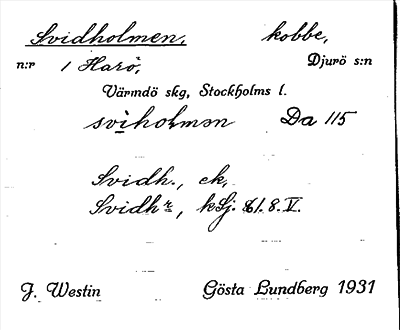 Svidholmen, kobbe,
n:r 1 Harö, Djurö s:n
Värmdö skg, Stockholms l.
svìholmən Da 115
Svidh., ek,
Svidhr, kSj. 61.8.V.
J. Westin Gösta Lundberg 1931